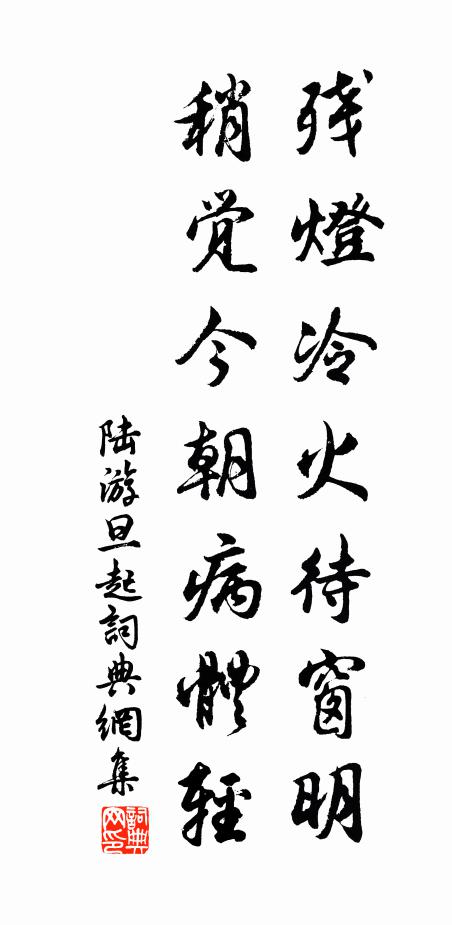 残燈冷火待窗明
稍觉今朝病體輕
陆游旦起詞典網集
詞典网印